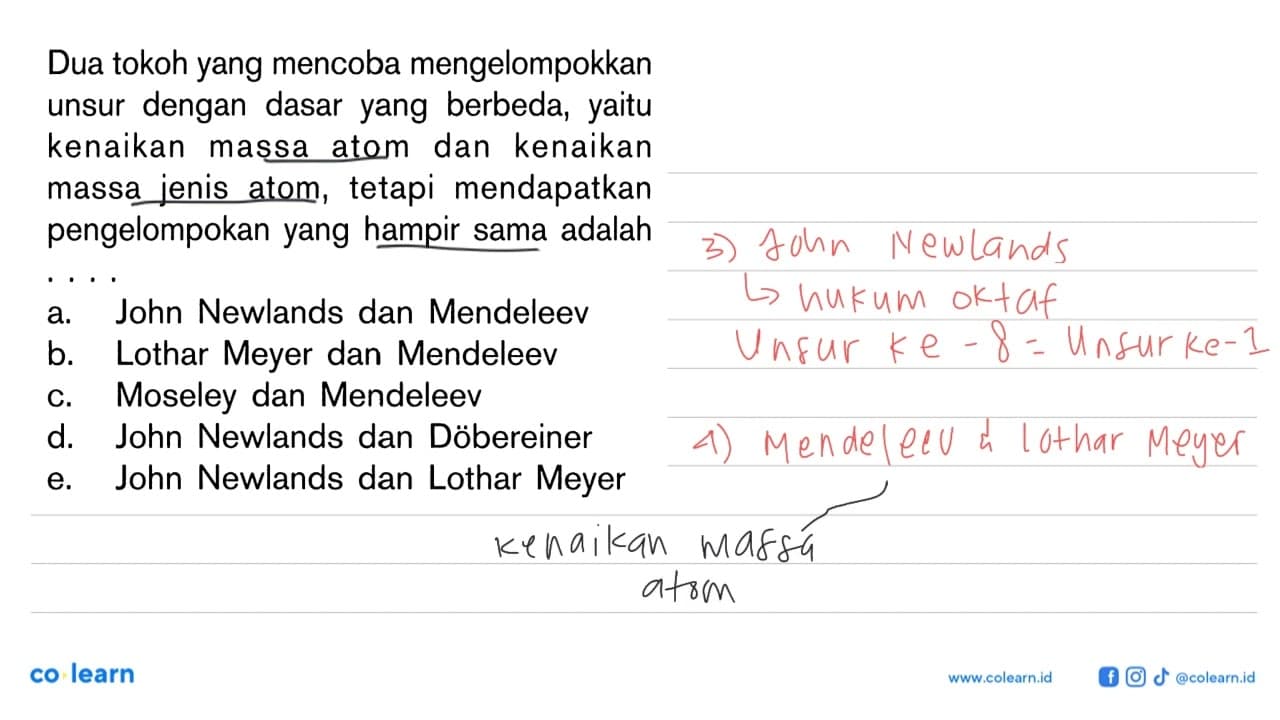 Dua tokoh yang mencoba mengelompokkan
unsur dengan dasar yang berbeda, yaitu
kenaikan massa atom dan kenaikan
massa jenis atom, tetapi mendapatkan
pengelompokan yang hampir sama adalah
. . . .
a. John Newlands dan Mendeleev
b. Lothar Meyer dan Mendeleev
c. Moseley dan Mendeleev
d. John Newlands dan Döbereiner
e. John Newlands dan Lothar Meyer
3) John Newlands
↳ hukum oktaf
Unsur ke - 8 = Unsur ke-1
4) Mendeleev & lothar Meyer
kenaikan massa
atom
co learn
www.colearn.id
@colearn.id